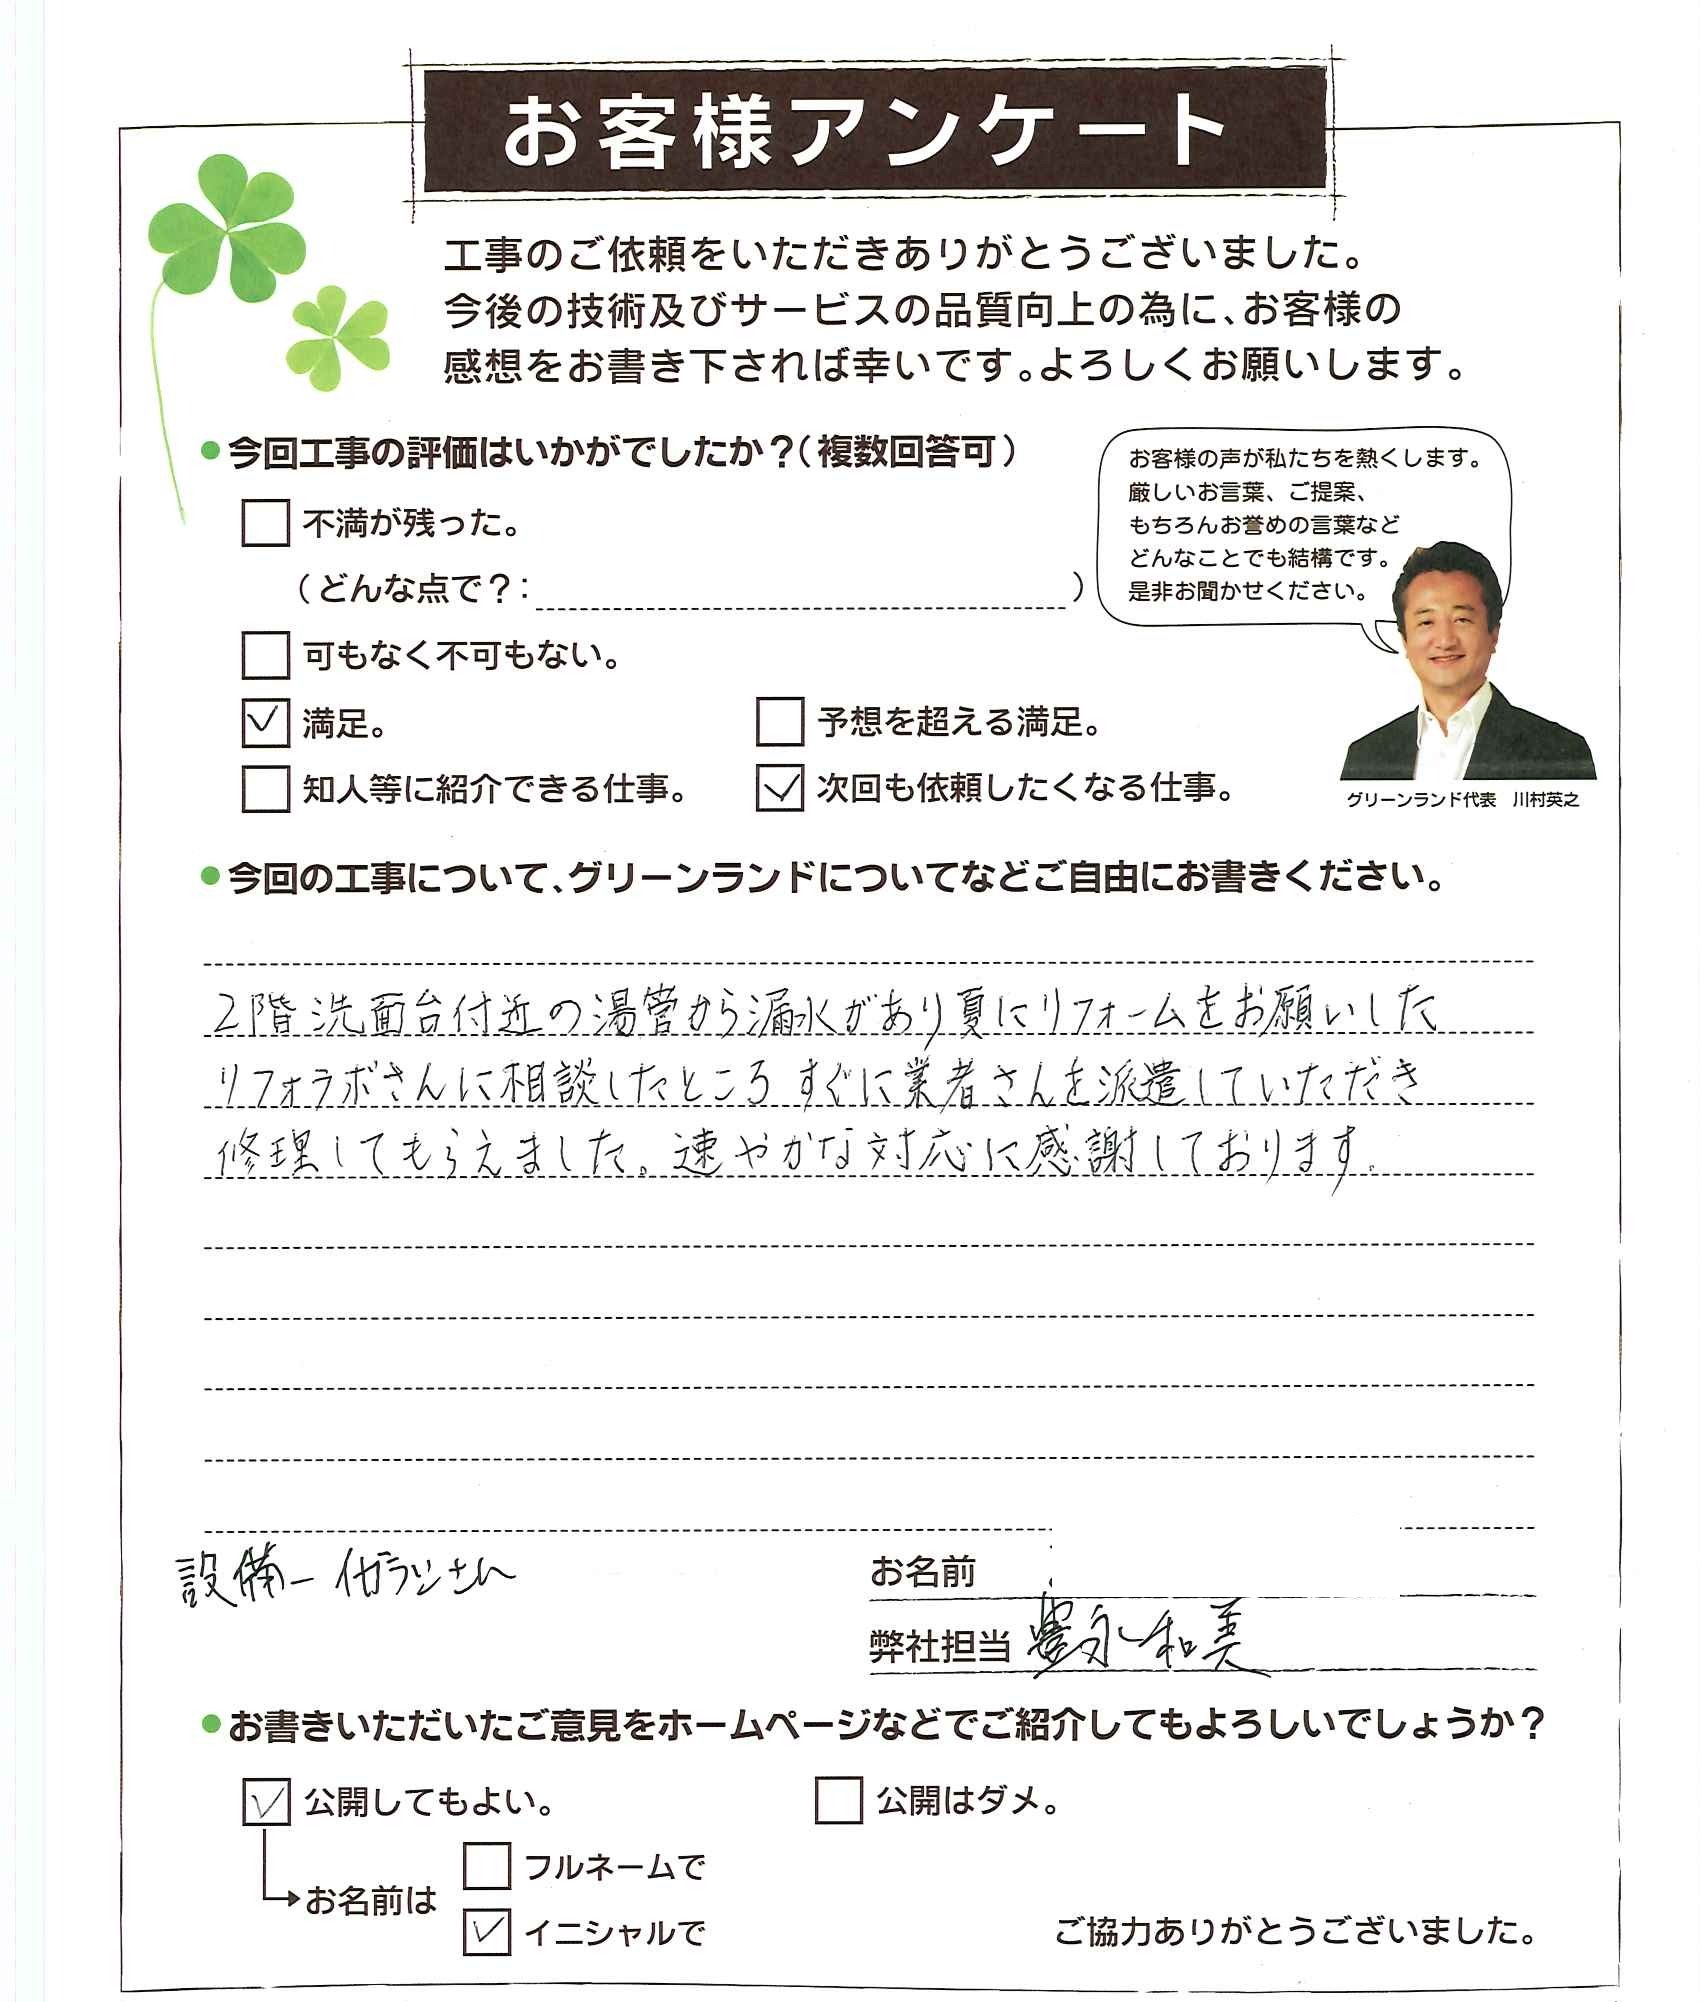 お客様アンケート
工事のご依頼をいただきありがとうございました。
今後の技術及びサービスの品質向上の為に、お客様の
感想をお書き下されば幸いです。よろしくお願いします。
●今回工事の評価はいかがでしたか？（複数回答可）
お客様の声が私たちを熱くします。
厳しいお言葉、ご提案、
もちろんお誉めの言葉など
どんなことでも結構です。
是非お聞かせください。
不満が残った。
（どんな点で？：）
可もなく不可もない。
満足。 予想を超える満足。
知人等に紹介できる仕事。 次回も依頼したくなる仕事。
グリーンランド代表 川村英之
●今回の工事について、グリーンランドについてなどご自由にお書きください。
2階洗面台付近の湯管から漏水があり夏にリフォームをお願いした
リフォラボさんに相談したところすぐに業者さんを派遣していただき
修理してもらえました。速やかな対応に感謝しております。
設備
お名前
弊社担当 豊永和美
●お書きいただいたご意見をホームページなどでご紹介してもよろしいでしょうか？
公開してもよい。 公開はダメ。
フルネームで
お名前は
イニシャルで
ご協力ありがとうございました。